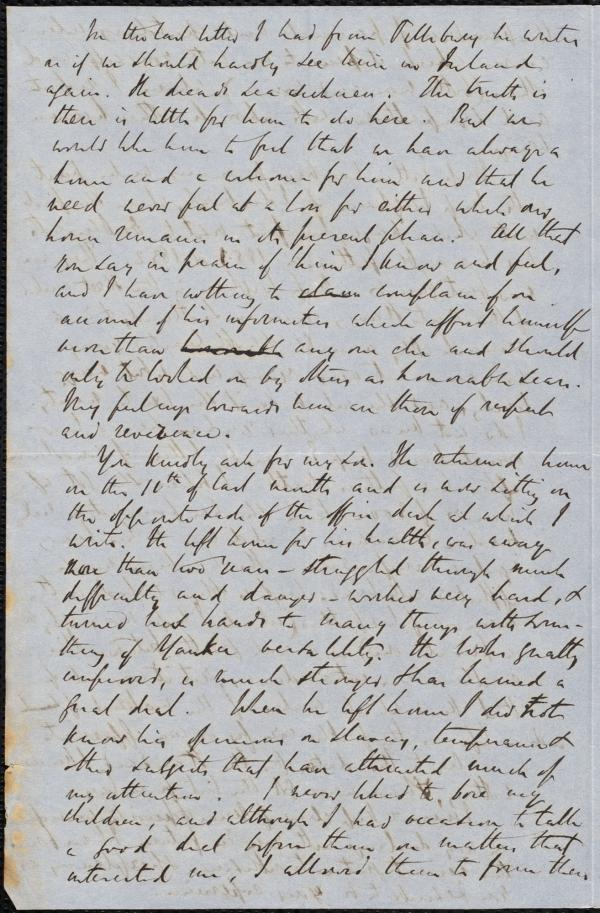 In the last letter I had from Pillsbury he writes
as if we should hardly see him in Ireland
again. He dreads sea sickness. The truth is
there is little for him to do here. But we
would like him to feel that we have always a
home and a welcome for him and that he
need never feel at a loss for either while our
home remains in its present phase. All that
you say in praise of him I know and feel,
and I have nothing to claim complain of on
account of his infirmities which afford himself
more than any one else and should
only be looked on by others as honorable scars.
My feelings towards him are those of respect
and reverence.
You kindly ask for my son. He returned home
on the 10th of last month and is now sitting on
the opposite side of the office desk at which I
write. He left home for his health, was away
more than two years - struggled through much
difficulty and danger - worked very hard, &
turned his hands to many things with some-
thing of Yankee versatility. He looks greatly
improved, is much stronger & has learned a
great deal. When he left home I did not
know his opinions on slavery, temperance &
other subjects that have attracted much of
my attention. I never liked to bore my
children, and although I had occasion to talk
a good deal before them on matters that
interested me, I allowed them to form their